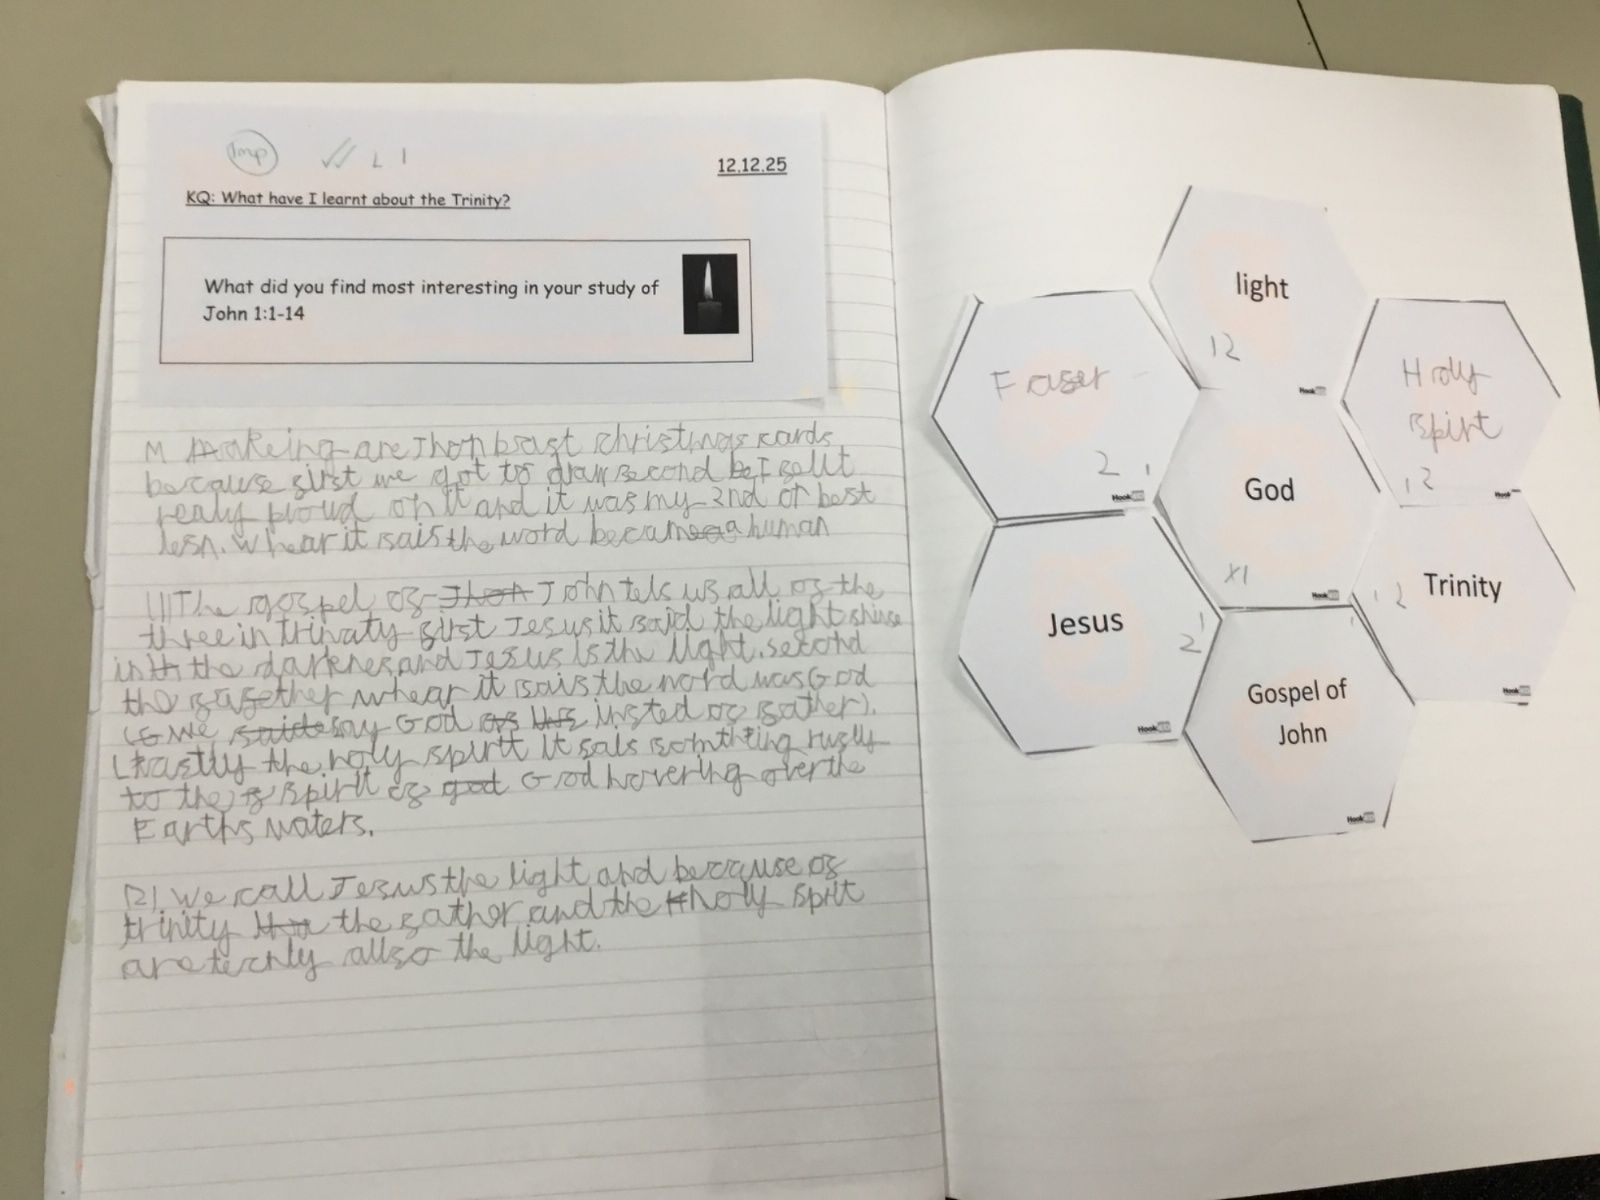 Imp L 1
12.12.25
KQ: What have I learnt about the Trinity?
What did you find most interesting in your study of
John 1:1-14
M makeing are Jhon christmas cards
because first we got to draw second I felt
realy proud on it and it was my 2nd or best
lesn. whear it sais the word became a human
The gospel of Jhon John tels us all of the
three in trinaty first Jesus it said the light shinse
in the darknes, and Jesus is the light. second
the father whear it sais the word was God
(we say God insted of father).
Lastly the holy spirit it sais somthing
to the spirit of god God hovering over the
Earths waters.
[2] We call Jesus the light and because of
trinity the father and the holy sprit
are allso the light.
light
12
Father
2 1
Holy
Spirt
12
God
X1
Jesus
1
2
Trinity
12
Gospel of
John
1
Hook
Hook
Hook
Hook
Hook
Hook
Hook